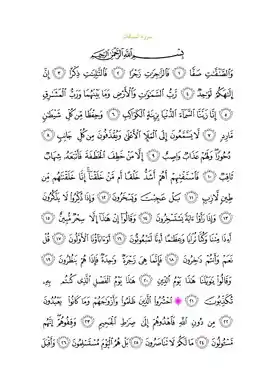 سورة الصافات
بِسْمِ اللَّهِ الرَّحْمَٰنِ الرَّحِيمِ
وَالصَّافَّاتِ صَفًّا ١ فَالزَّاجِرَاتِ زَجْرًا ٢ فَالتَّالِيَاتِ ذِكْرًا ٣ إِنَّ
إِلَٰهَكُمْ لَوَاحِدٌ ٤ رَبُّ السَّمَاوَاتِ وَالْأَرْضِ وَمَا بَيْنَهُمَا وَرَبُّ الْمَشَارِقِ
٥ إِنَّا زَيَّنَّا السَّمَاءَ الدُّنْيَا بِزِينَةٍ الْكَوَاكِبِ ٦ وَحِفْظًا مِنْ كُلِّ شَيْطَانٍ
مَارِدٍ ٧ لَا يَسَّمَّعُونَ إِلَى الْمَلَإِ الْأَعْلَىٰ وَيُقْذَفُونَ مِنْ كُلِّ جَانِبٍ ٨
دُحُورًا وَلَهُمْ عَذَابٌ وَاصِبٌ ٩ إِلَّا مَنْ خَطِفَ الْخَطْفَةَ فَأَتْبَعَهُ شِهَابٌ
ثَاقِبٌ ١٠ فَاسْتَفْتِهِمْ أَهُمْ أَشَدُّ خَلْقًا أَمْ مَنْ خَلَقْنَا إِنَّا خَلَقْنَاهُمْ مِنْ
طِينٍ لَازِبٍ ١١ بَلْ عَجِبْتَ وَيَسْخَرُونَ ١٢ وَإِذَا ذُكِّرُوا لَا يَذْكُرُونَ
١٣ وَإِذَا رَأَوْا آيَةً يَسْتَسْخِرُونَ ١٤ وَقَالُوا إِنْ هَٰذَا إِلَّا سِحْرٌ مُبِينٌ ١٥
أَإِذَا مِتْنَا وَكُنَّا تُرَابًا وَعِظَامًا أَإِنَّا لَمَبْعُوثُونَ ١٦ أَوَآبَاؤُنَا الْأَوَّلُونَ ١٧ قُلْ
نَعَمْ وَأَنْتُمْ دَاخِرُونَ ١٨ فَإِنَّمَا هِيَ زَجْرَةٌ وَاحِدَةٌ فَإِذَا هُمْ يَنْظُرُونَ ١٩
وَقَالُوا يَا وَيْلَنَا هَٰذَا يَوْمُ الدِّينِ ٢٠ هَٰذَا يَوْمُ الْفَصْلِ الَّذِي كُنْتُمْ بِهِ
تُكَذِّبُونَ ٢١ احْشُرُوا الَّذِينَ ظَلَمُوا وَأَزْوَاجَهُمْ وَمَا كَانُوا يَعْبُدُونَ
٢٢ مِنْ دُونِ اللَّهِ فَاهْدُوهُمْ إِلَىٰ صِرَاطِ الْجَحِيمِ ٢٣ وَقِفُوهُمْ إِنَّهُمْ
مَسْئُولُونَ ٢٤ مَا لَكُمْ لَا تَنَاصَرُونَ ٢٥ بَلْ هُمُ الْيَوْمَ مُسْتَسْلِمُونَ ٢٦ وَأَقْبَلَ